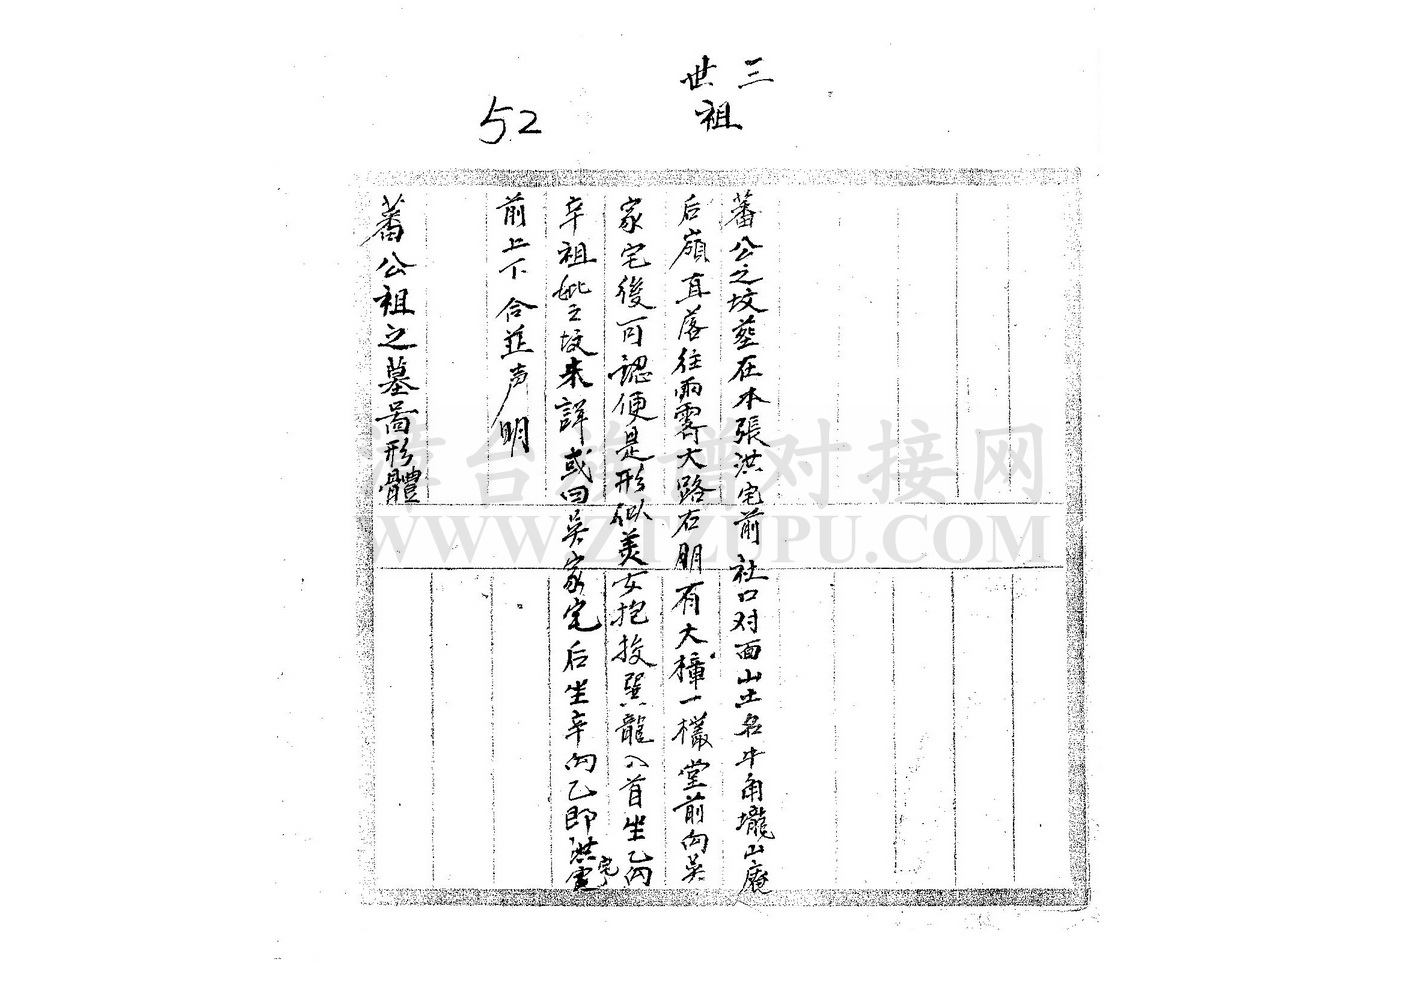 三世祖
52
蕃公之坟墓在本張洪宅前社口对面山土名牛角壠山庵
后嶺直落往雨霁大路右朋有大樟一欉堂前向吴
家宅後可認便是形似美女抱按巽龍入首坐乙向
辛祖妣之坟未詳或曰吴家宅后坐辛向乙即洪宅
前上下合並声明
蕃公祖之墓啚形體
漳台族谱对接网
WWW.ZTZUPU.COM